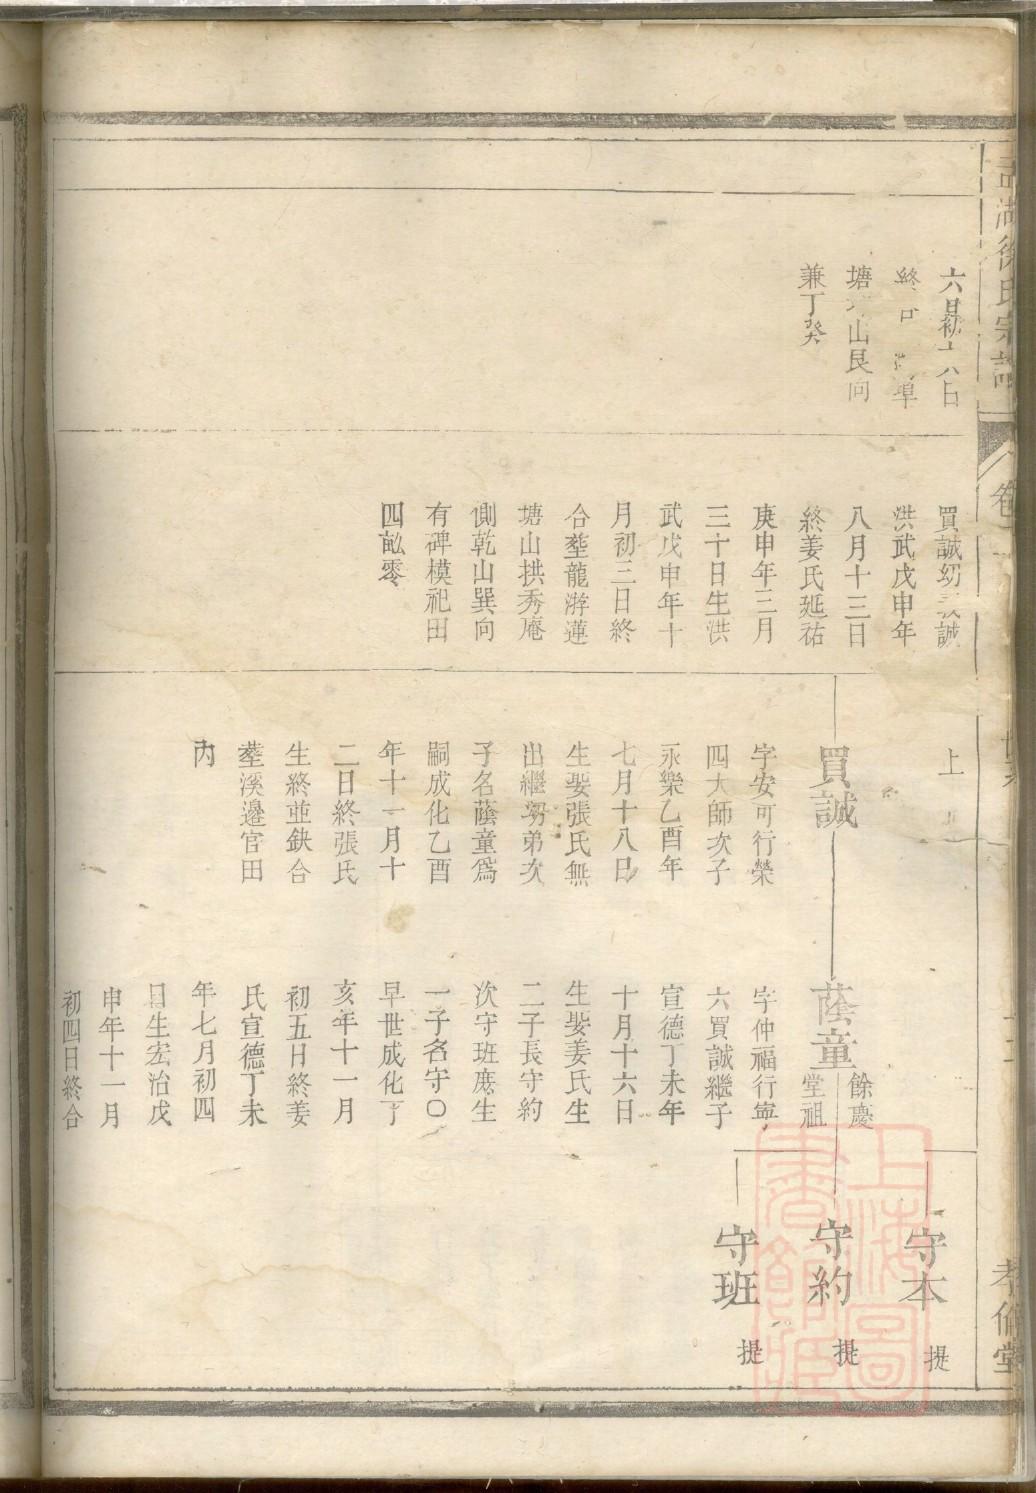 孟湖徐氏宗譜
卷
孝倫堂
六日初六日
終
塘 山艮向
兼丁癸
買誠幼 誠
洪武戊申年
八月十三日
終姜氏延祐
庚申年三月
三十日生洪
武戊申年十
月初三日終
合塟龍游蓮
塘山拱秀庵
側乾山巽向
有碑模祀田
四畝零
上
買誠
字安可行榮
四大師次子
永樂乙酉年
七月十八日
生娶張氏無
出繼堂弟次
子名蔭童爲
嗣成化乙酉
年十一月十
二日終張氏
生終並缺合
塟溪邊官田
內
蔭童
餘慶
堂祖
字仲福行寧
六買誠繼子
宣德丁未年
十月十六日
生娶姜氏生
二子長守約
次守班庶生
一子名守〇
早世成化丁
亥年十一月
初五日終姜
氏宣德丁未
年七月初四
日生宏治戊
申年十一月
初四日終合
守本 提
守約 提
守班 提
上海圖
書館藏